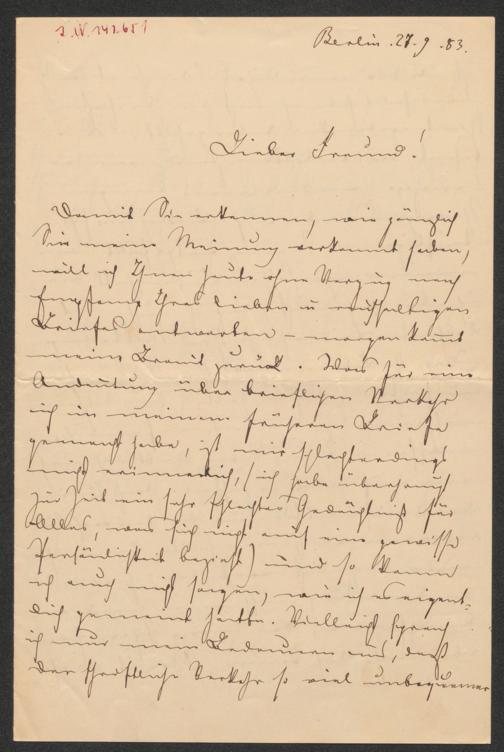 I.N. 141.651
Berlin. 27. 9. 83.
Lieber Freund!
Damit Sie erkennen, wie gänzlich
Sie meine Meinung verkannt haben,
will ich Ihnen heute ohne Verzug nach
Empfang Ihres lieben u reichhaltigen
Briefes antworten – morgen kommt
meine Braut zurück. Was für eine
Andeutung über brieflichen Verkehr
ich in meinem früheren Briefe
gemacht habe, ist mir schlechterdings
nicht erinnerlich, (ich habe überhaupt
zur Zeit ein sehr schlechtes Gedächtniß für
Alles, was sich nicht auf eine gewisse
Persönlichkeit bezieht) und so kann
ich auch nicht sagen, wie ich es eigent-
lich gemeint hatte. Vielleicht sprach
ich nur mein Bedauern aus, daß
der schriftliche Verkehr so viel unbequemer